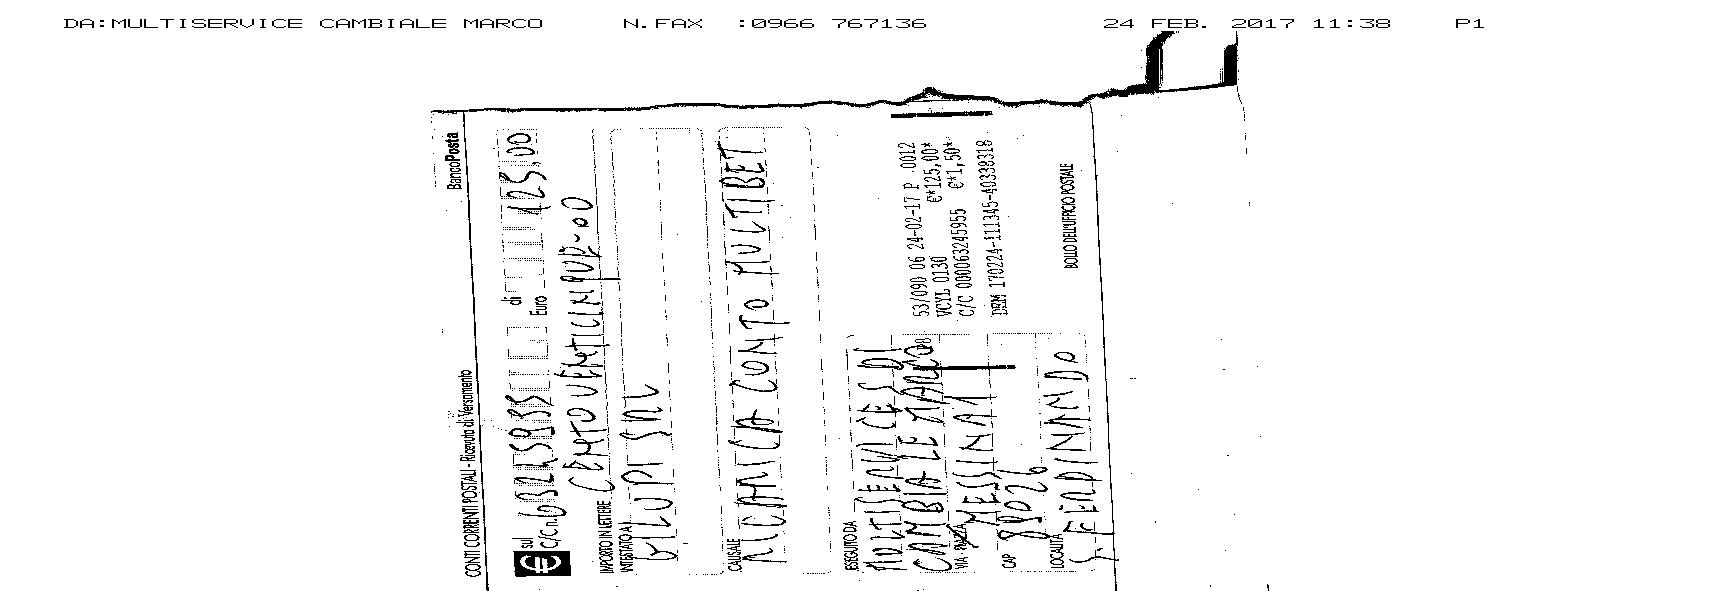 DA:MULTISERVICE CAMBIALE MARCO N.FAX :0966 767136 24 FEB. 2017 11:38 P1
CONTI CORRENTI POSTALI - Ricevuta di Versamento BancoPosta
€ sul C/C n. 63245955 di Euro 125,00
IMPORTO IN LETTERE CENTOVENTICINQUE-00
INTESTATO A
BILUPI SRL
CAUSALE
RICARICA CONTO MULTIBET
ESEGUITO DA
MULTISERVICES DI
CAMBIALE MARCO
VIA - PIAZZA MESSINA
CAP 89026
LOCALITÀ
S. FERDINANDO
53/090 06 24-02-17 P 0012
VCYL 0130 €*125,00*
C/C 000063245955 €*1,50*
DEM 170224-111345-40339319
BOLLO DELL'UFFICIO POSTALE